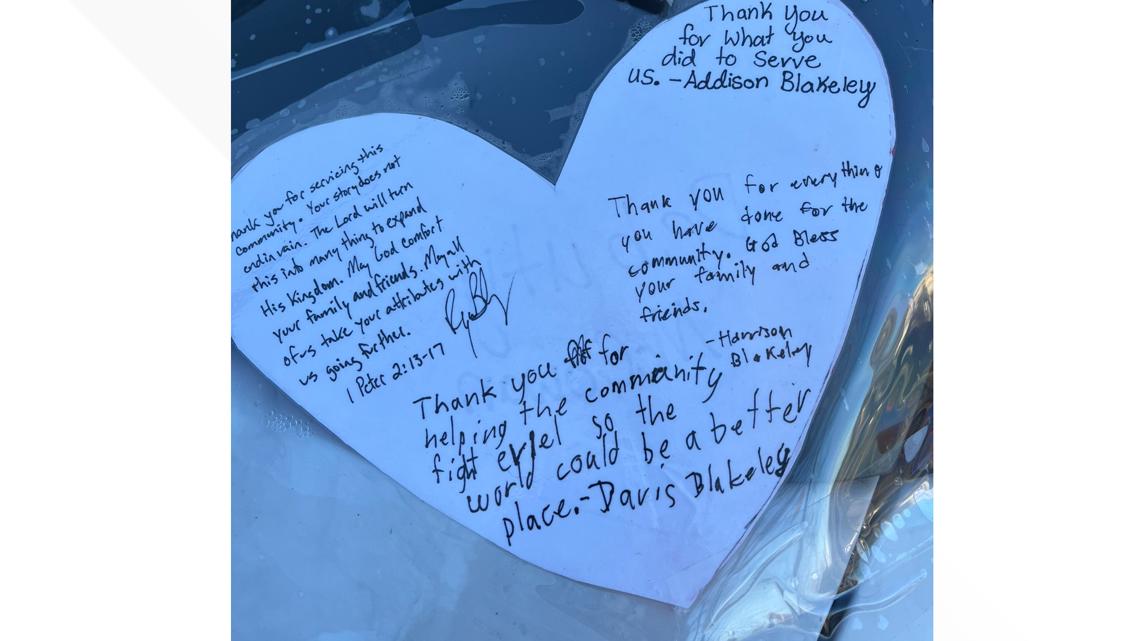 Thank you
for what you
did to serve
us. -Addison Blakeley
hank you for servicing this
community. Your story does not
end in vain. The Lord will turn
this into many thing to expand
His Kingdom. May God comfort
your family and friends. May all
of us take your attributes with
us going further.
1 Peter 2:13-17
Thank you for everything
you have done for the
community. God Bless
your family and
friends.
-Harrison
Blakeley
Thank you for
helping the community
fight evfel so the
world could be a better
place.-Davis Blakeley